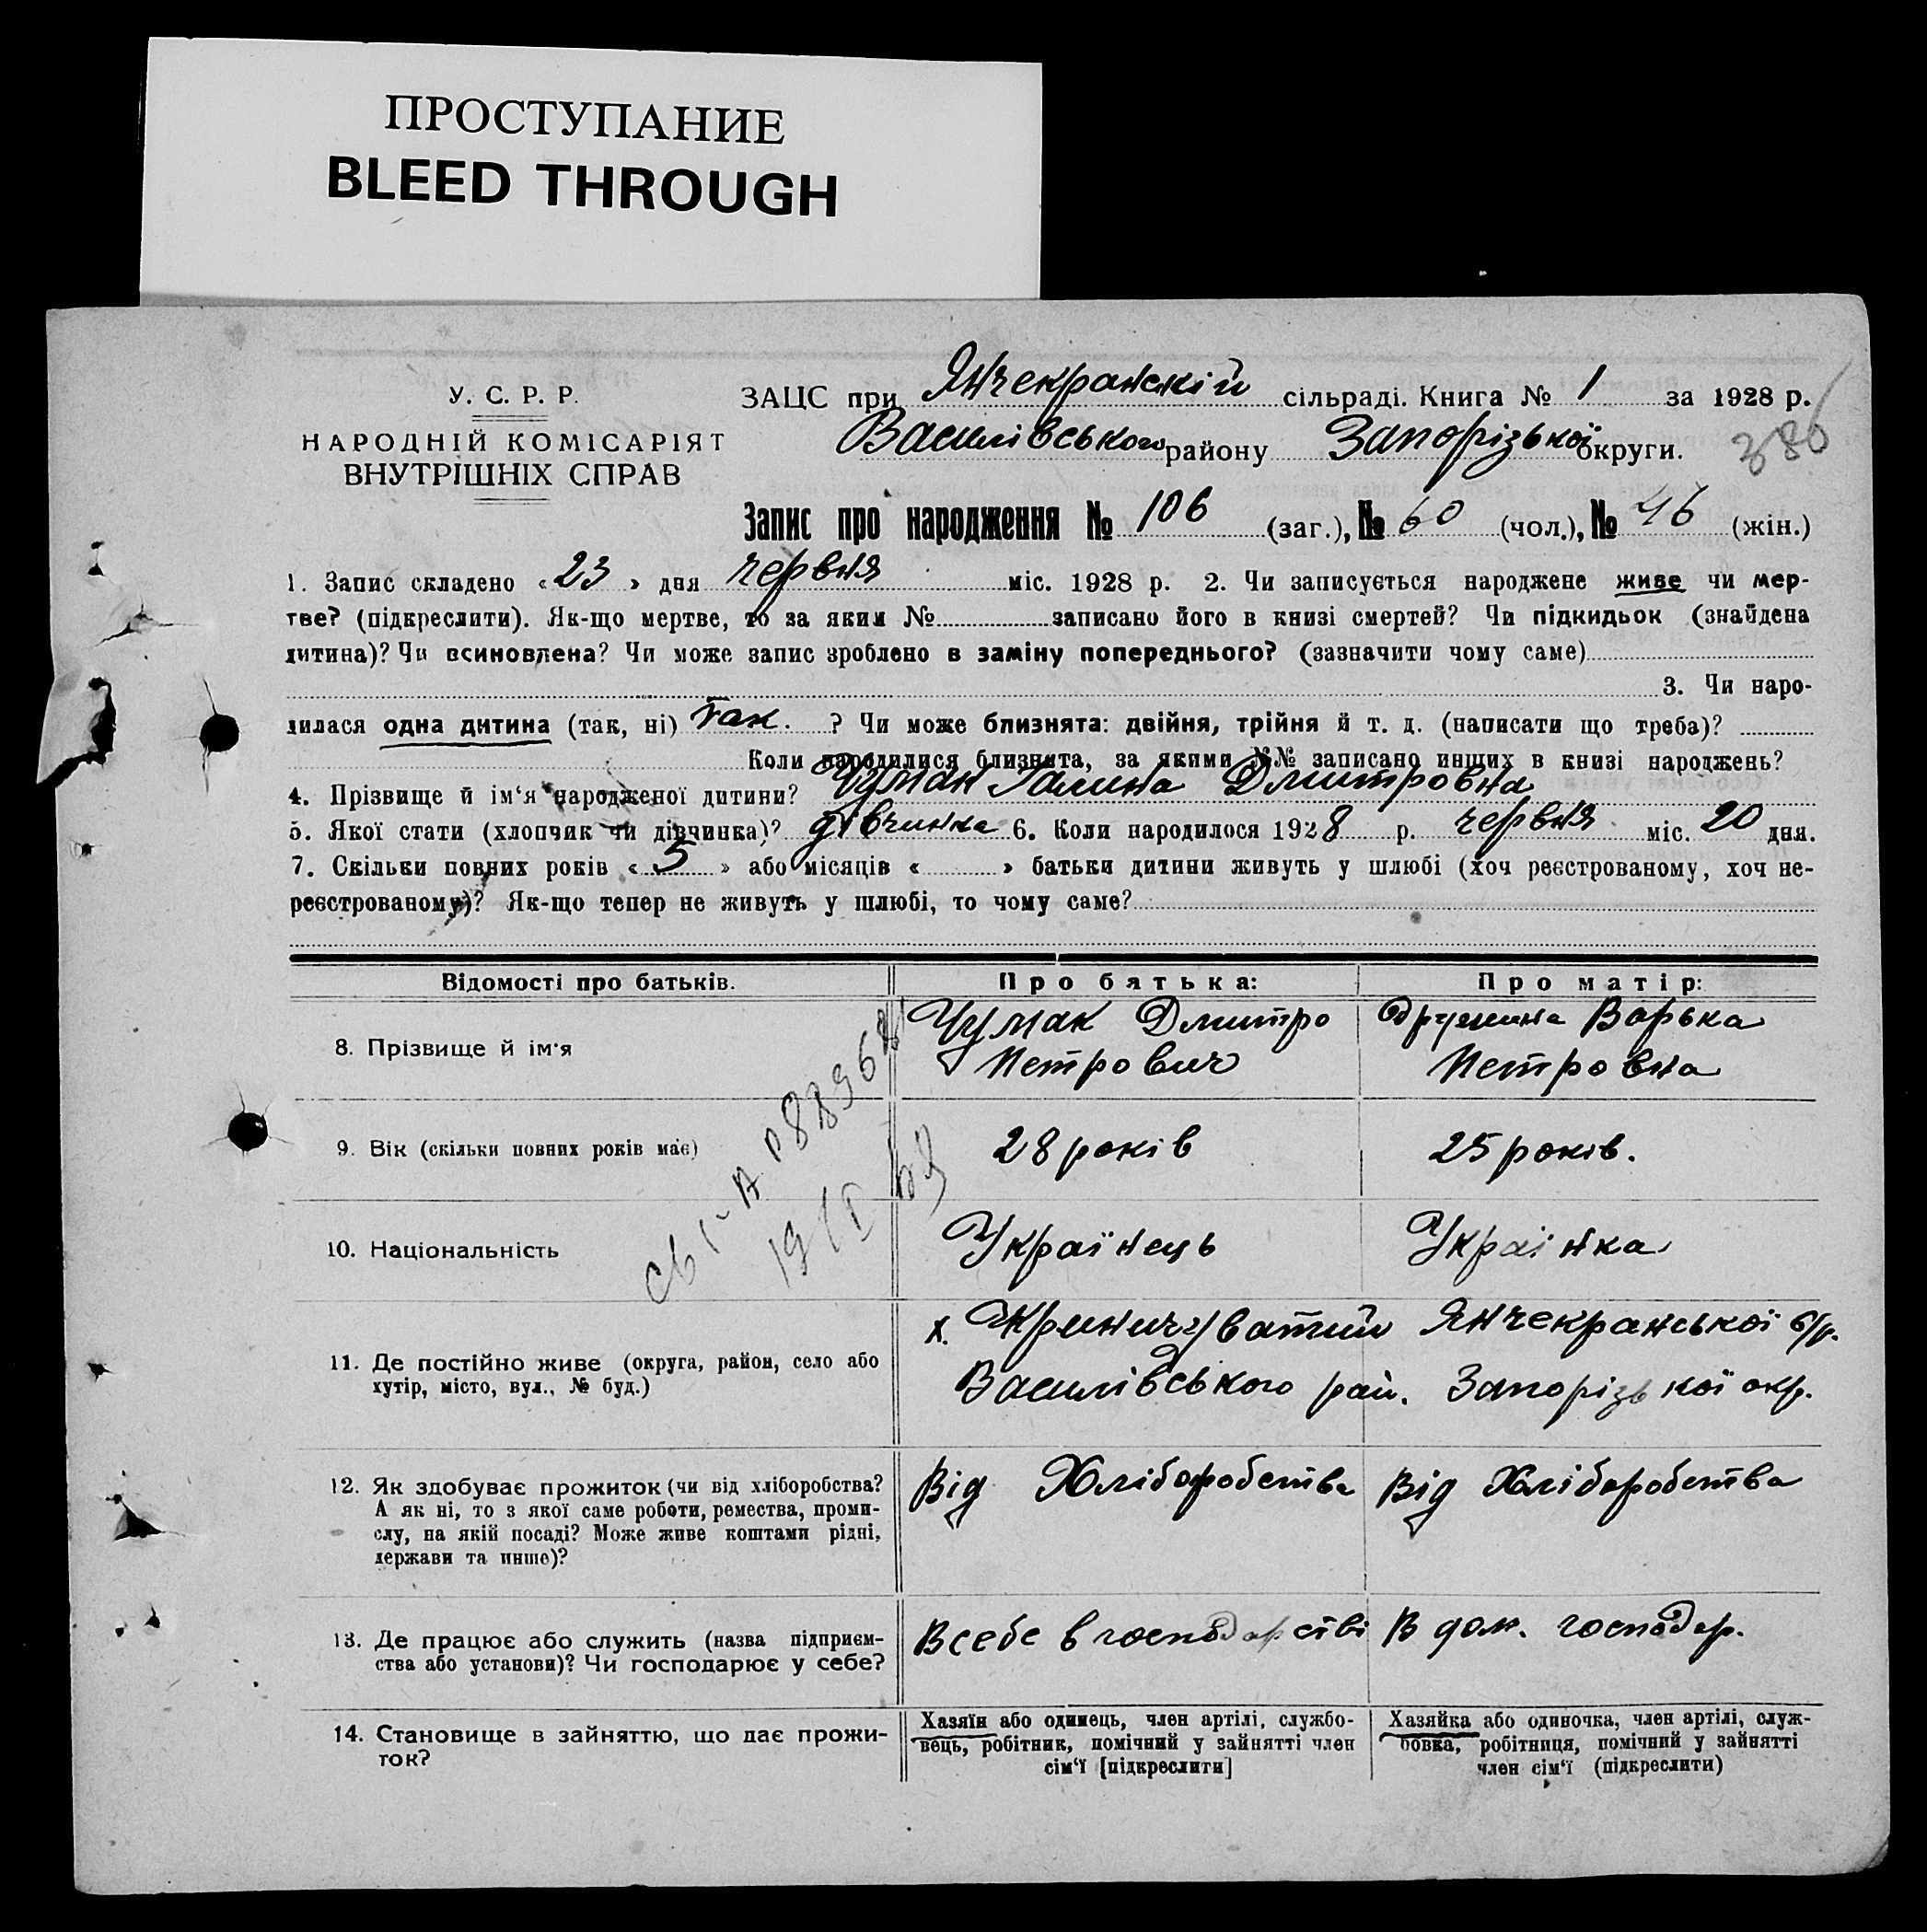 ПРОСТУПАНИЕ
BLEED THROUGH
У. С. Р. Р.
НАРОДНІЙ КОМІСАРІЯТ
ВНУТРІШНІХ СПРАВ
ЗАЦС при Янчекранській сільраді. Книга № 1 за 1928 р.
Василівського району Запорізької округи.
386
Запис про народження № 106 (заг.), № 60 (чол.), № 46 (жін.)
1. Запис складено «23» дня червня міс. 1928 р. 2. Чи записується народжене живе чи мер-
тве? (підкреслити). Як-що мертве, то за яким № записано його в книзі смертей? Чи підкидьок (знайдена
дитина)? Чи всиновлена? Чи може запис зроблено в заміну попереднього? (зазначити чому саме)
3. Чи наро-
дилася одна дитина (так, ні) так. ? Чи може близнята: двійня, трійня й т. д. (написати що треба)?
Коли народилися близнята, за якими №№ записано инших в книзі народжень?
4. Прізвище й ім‘я народженої дитини? Чумак Галина Дмитровна
5. Якої стати (хлопчик чи дівчинка)? дівчинка 6. Коли народилося 1928 р. червня міс. 20 дня.
7. Скільки повних років «5» або місяців « » батьки дитини живуть у шлюбі (хоч реєстрованому, хоч не-
реєстрованому)? Як-що тепер не живуть у шлюбі, то чому саме?
Відомості про батьків. Про батька: Про матір:
8. Прізвище й ім‘я
Чумак Дмитро
Петрович
Дружина Варька
Петровна
9. Вік (скільки повних років має)
28 років
25 років.
10. Національність
Українець
Українка
11. Де постійно живе (округа, район, село або
хутір, місто, вул., № буд.)
х. Криничуватий Янчекранської с/р.
Василівського рай. Запорізької окр.
12. Як здобуває прожиток (чи від хліборобства?
А як ні, то з якої саме роботи, ремества, проми-
слу, на якій посаді? Може живе коштами рідні,
держави та инше)?
Від Хліборобства
Від Хліборобства
13. Де працює або служить (назва підприєм-
ства або установи)? Чи господарює у себе?
В себе в господарстві
В дом. господар.
14. Становище в зайняттю, що дає прожи-
ток?
Хазяїн або одинець, член артілі, службо-
вець, робітник, помічний у зайнятті член
сім‘ї [підкреслити]
Хазяйка або одиночка, член артілі, служ-
бовка, робітниця, помічний у зайнятті
член сім‘ї (підкреслити)